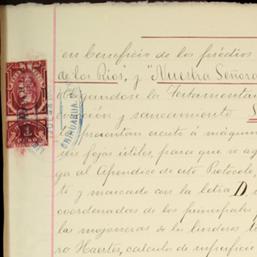 en beneficio de los predios
de los Rios", y "Nuestra Señora
obligandose la Testamentar
evicción y saneamiento
presentan escrito á máquina
en fojas útiles, para que se ag
ga al Apendice de este Protocolo,
te y marcado con la letra D
coordenadas de los principales
las mojoneras de los linderos
ro Haerter, calculo de superficie
CHIHUAHUA